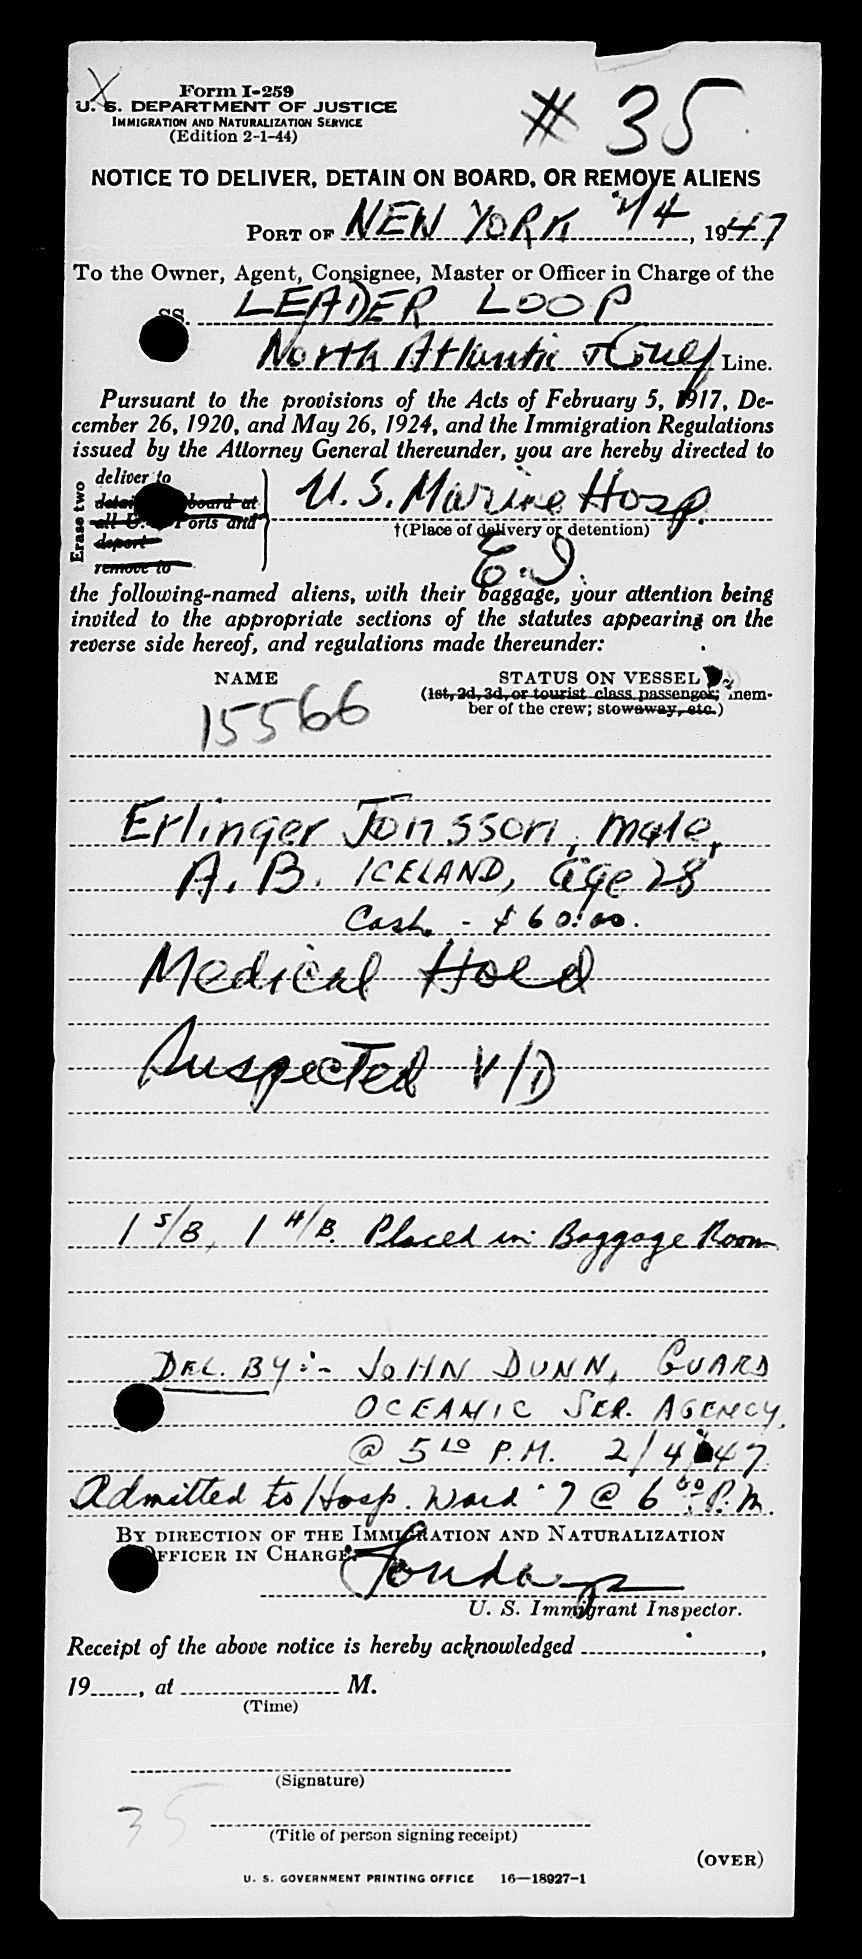 X
Form I-259
U. S. DEPARTMENT OF JUSTICE
IMMIGRATION AND NATURALIZATION SERVICE
(Edition 2-1-44)
# 35
NOTICE TO DELIVER, DETAIN ON BOARD, OR REMOVE ALIENS
PORT OF NEW YORK 2/4, 1947
To the Owner, Agent, Consignee, Master or Officer in Charge of the
SS. LEADER LOOP
North Atlantic & Gulf Line.
Pursuant to the provisions of the Acts of February 5, 1917, De-
cember 26, 1920, and May 26, 1924, and the Immigration Regulations
issued by the Attorney General thereunder, you are hereby directed to
Erase two
deliver to
board at
all U. Ports and
deport
remove to
U. S. Marine Hosp.
†(Place of delivery or detention)
E. I.
the following-named aliens, with their baggage, your attention being
invited to the appropriate sections of the statutes appearing on the
reverse side hereof, and regulations made thereunder:
NAME STATUS ON VESSEL
(1st, 2d, 3d, or tourist class passenger; mem-
ber of the crew; stowaway, etc.)
15566
Erlinger Jonsson, male,
A. B. ICELAND, age 28
Cash - $60.00.
Medical Hold
Suspected V/D
1 S/B, 1 H/B. Placed in Baggage Room
DEL. BY:- JOHN DUNN, GUARD
OCEANIC SER. AGENCY.
@ 5 10 P.M. 2/4/47
Admitted to Hosp. Ward 7 @ 6 00 P.M.
BY DIRECTION OF THE IMMIGRATION AND NATURALIZATION
OFFICER IN CHARGE:
U. S. Immigrant Inspector.
Receipt of the above notice is hereby acknowledged ,
19 , at M.
(Time)
(Signature)
35
(Title of person signing receipt)
(OVER)
U. S. GOVERNMENT PRINTING OFFICE 16—18927-1